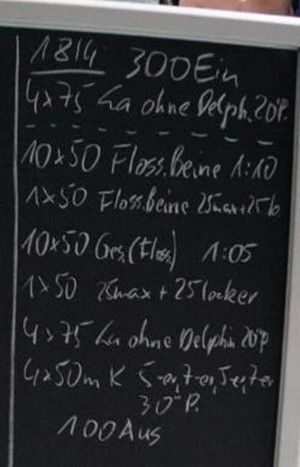 1814 300 Ein
4x75 La ohne Delph. 20"P.
10x50 Floss. Beine 1:10
1x50 Floss. Beine 25max+25lo
10x50 Ges. (Floss.) 1:05
1x50 25max + 25locker
4x75 La ohne Delphin 20"P
4x50m K 5-er, 7-er, 5-er, 7-er
30"P.
100 Aus